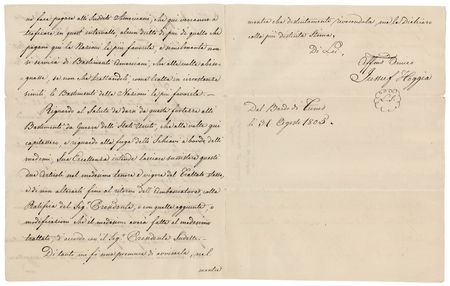 nò fare pagare alli Sudditi Americani, che qui verranno a
trafficare in questi intervalli, alcun diritto di più di quello che
pagano quì le Nazioni le più favorite; e similmente non
si servirà di Bastimenti Americani, che alla volta abiso-
gnasse, se non che trattandoli come tratta in circostanze
simili le Bastimenti della Nazione la più favorita.
Riguardo al Saluto da darsi da queste fortezze alli
Bastimenti da Guerra delli Stati Uniti, che alle volte quì
capitassero, e riguardo alla fuga delle Schiavi a bordo delle
medesmi, Sua Eccellenza intende lasciare sussistere questi
due Articoli nel medesimo tenore e vigore del Trattato stesso,
e di non alterarli fino al ritorno dell'Ambasciatore, colla
Ratifica del Sigr. Presidente, o con quelle aggiunte, o
modificazioni che il medesimo averà fatte al medesimo
trattato, d'accordo con il Sigr. Presidente Suddetto.
Di tanto mi fò una premura di avvisarla, nel
mentre
mentre che distintamente, riverendola, me la dichiaro
colla più distinta stima,
Di Lei,
Jussuf Hoggia
Dal Bardo di Tunis
li 31 Agosto 1805.